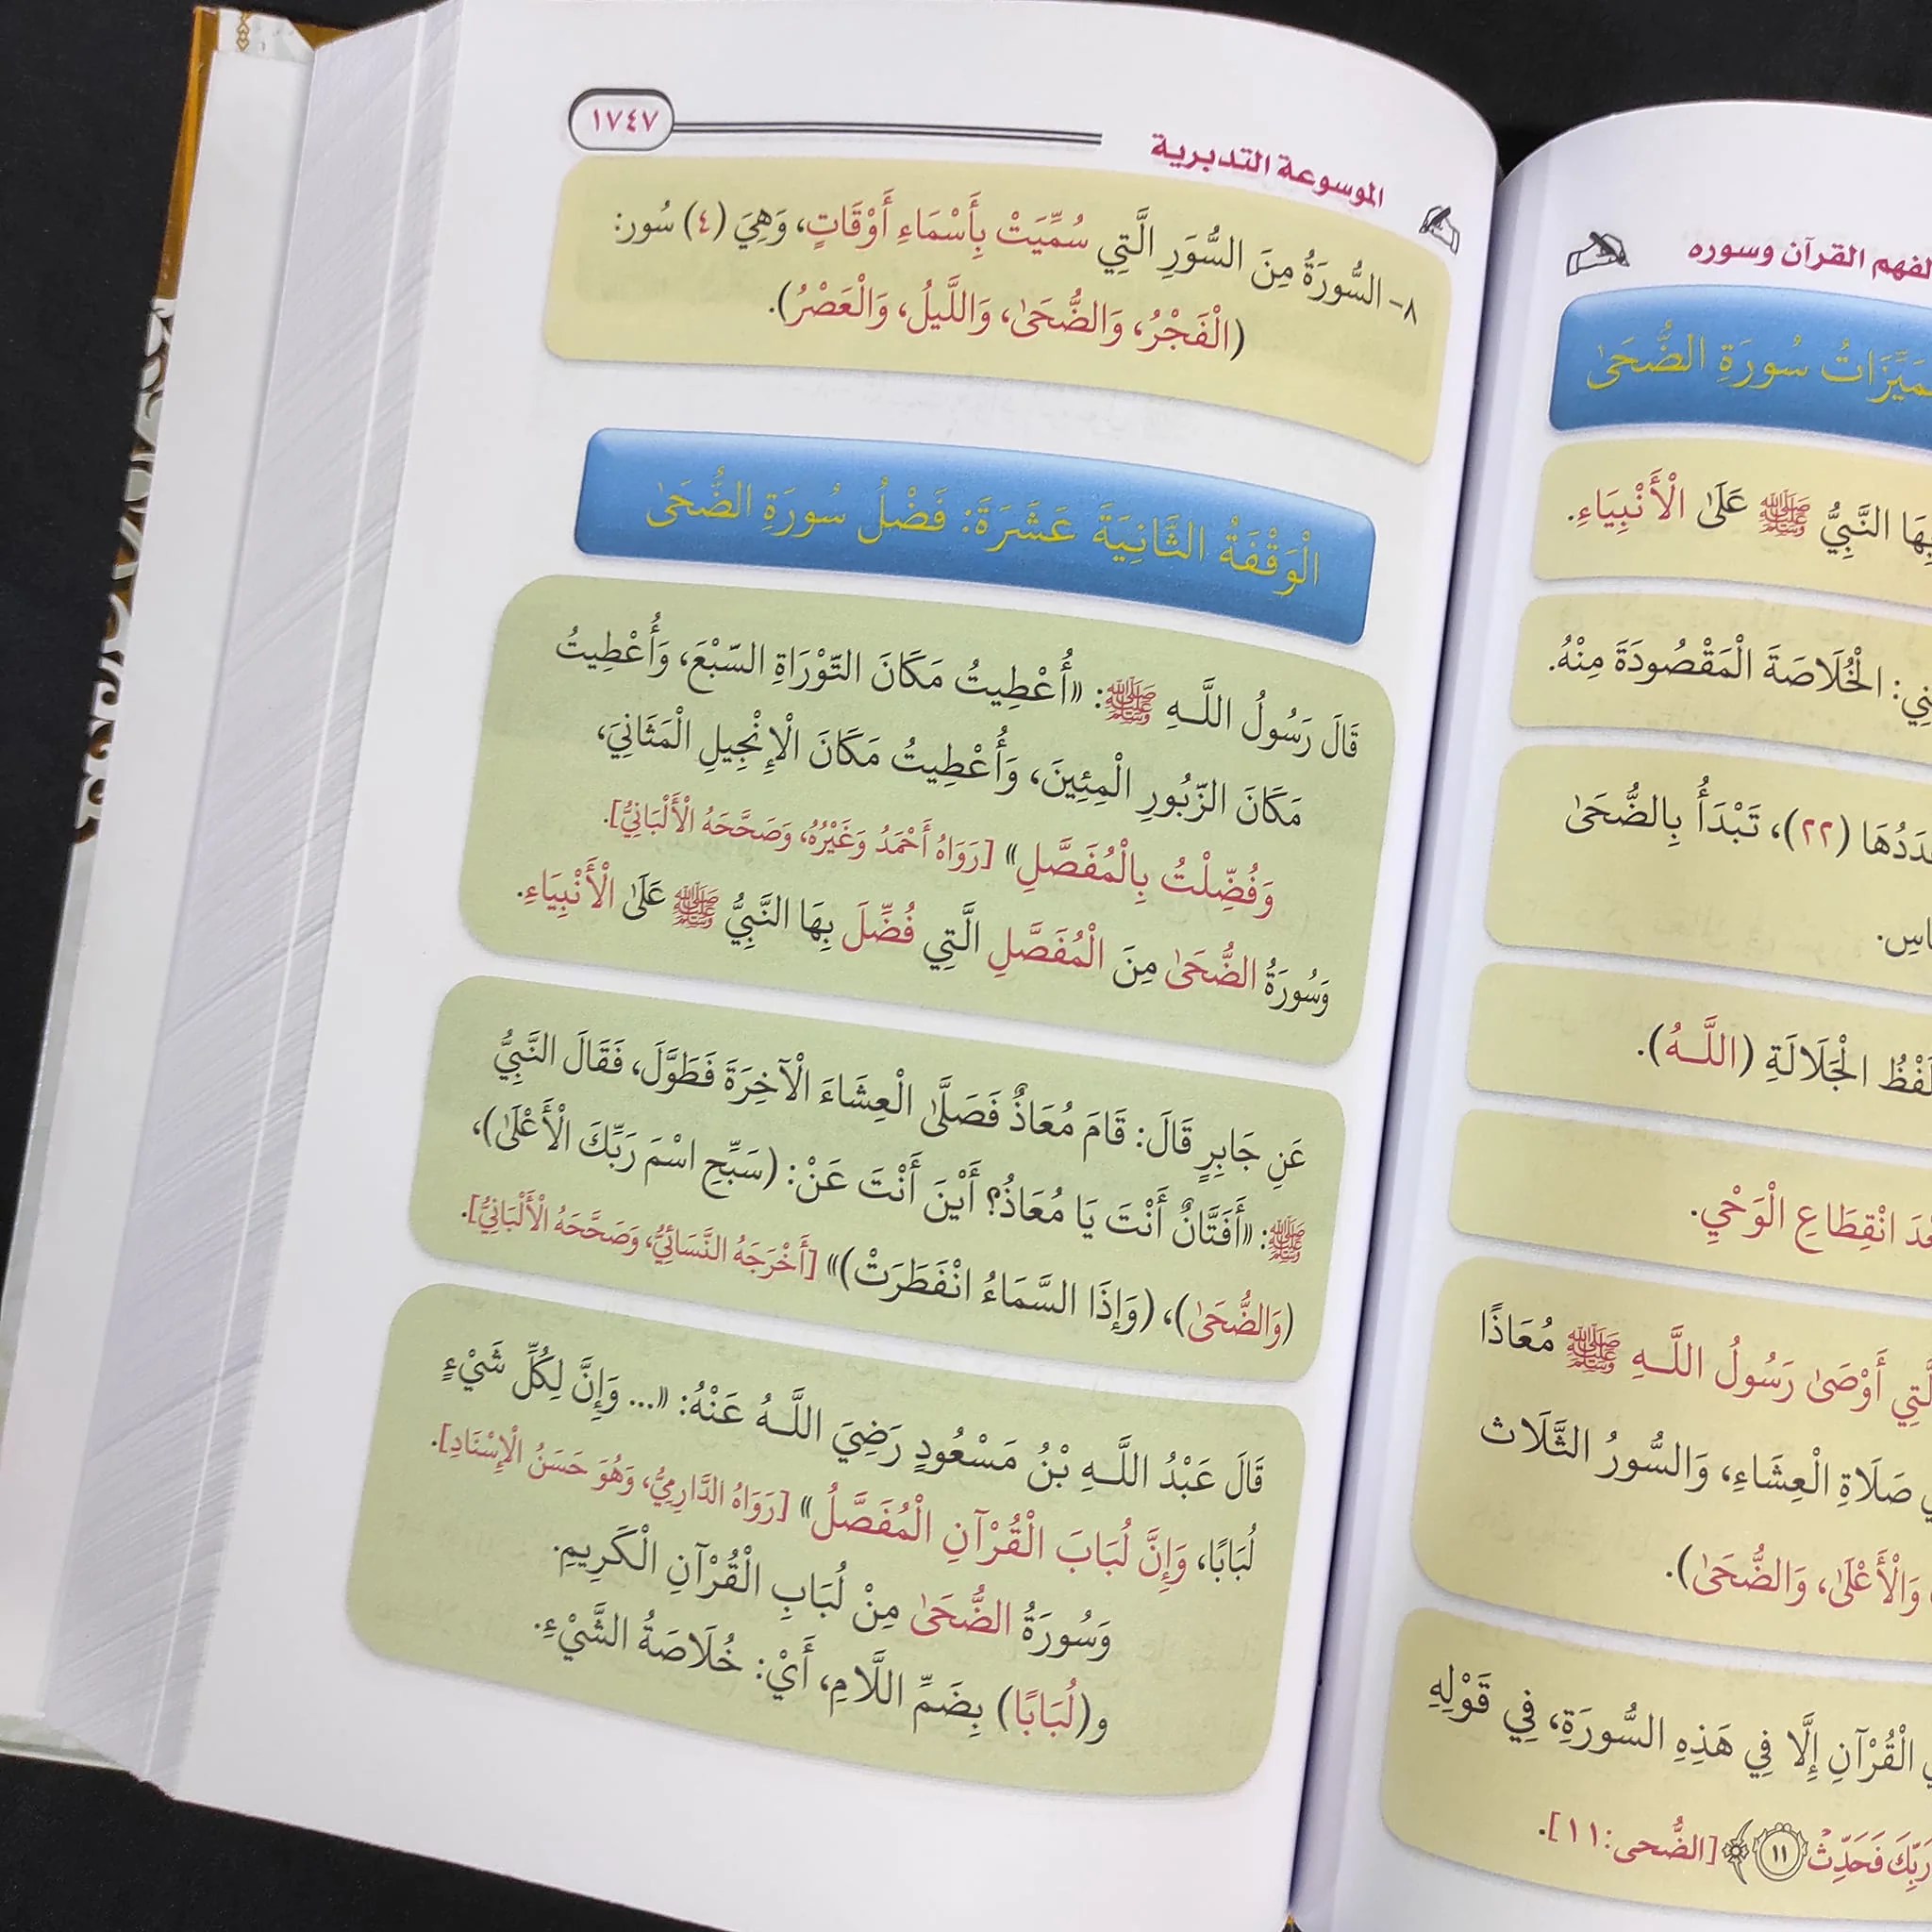 لفهم القرآن وسوره
سُورَةِ الضُّحَىٰ
النَّبِيُّ ﷺ عَلَىٰ الْأَنْبِيَاءِ.
الْخُلَاصَةَ الْمَقْصُودَةَ مِنْهُ.
(٢٢)، تَبْدَأُ بِالضُّحَىٰ
الْجَلَالَةِ (اللَّـهُ).
انْقِطَاعِ الْوَحْيِ.
أَوْصَىٰ رَسُولُ اللَّـهِ ﷺ مُعَاذًا
صَلَاةِ الْعِشَاءِ، وَالسُّورُ الثَّلَاث
وَالْأَعْلَىٰ، وَالضُّحَىٰ).
الْقُرْآنِ إِلَّا فِي هَذِهِ السُّورَةِ، فِي قَوْلِهِ
رَبِّكَ فَحَدِّثْ ١١﴾ [الضُّحى:١١].
الموسوعة التدبرية
١٧٤٧
٨- السُّورَةُ مِنَ السُّوَرِ الَّتِي سُمِّيَتْ بِأَسْمَاءِ أَوْقَاتٍ، وَهِيَ (٤) سُور:
(الْفَجْرُ، وَالضُّحَىٰ، وَاللَّيلُ، وَالْعَصْرُ).
الْوَقْفَةُ الثَّانِيَةَ عَشَرَةَ: فَضْلُ سُورَةِ الضُّحَىٰ
قَالَ رَسُولُ اللَّـهِ ﷺ: «أُعْطِيتُ مَكَانَ التّوْرَاةِ السّبْعَ، وَأُعْطِيتُ
مَكَانَ الزّبُورِ الْمِئِينَ، وَأُعْطِيتُ مَكَانَ الْإِنْجِيلِ الْمَثَانِيَ،
وَفُضِّلْتُ بِالْمُفَصَّلِ» [رَوَاهُ أَحْمَدُ وَغَيْرُهُ، وَصَحَّحَهُ الْأَلْبَانِيُّ].
وَسُورَةُ الضُّحَىٰ مِنَ الْمُفَصَّلِ الَّتِي فُضِّلَ بِهَا النَّبِيُّ ﷺ عَلَىٰ الْأَنْبِيَاءِ.
عَنِ جَابِرٍ قَالَ: قَامَ مُعَاذٌ فَصَلَّىٰ الْعِشَاءَ الْآخِرَةَ فَطَوَّلَ، فَقَالَ النَّبِيُّ
ﷺ: «أَفَتَّانٌ أَنْتَ يَا مُعَاذُ؟ أَيْنَ أَنْتَ عَنْ: (سَبِّحِ اسْمَ رَبِّكَ الْأَعْلَىٰ)،
(وَالضُّحَىٰ)، (وَإِذَا السَّمَاءُ انْفَطَرَتْ)» [أَخْرَجَهُ النَّسَائِيُّ، وَصَحَّحَهُ الْأَلْبَانِيُّ].
قَالَ عَبْدُ اللَّـهِ بْنُ مَسْعُودٍ رَضِيَ اللَّـهُ عَنْهُ: «... وَإِنَّ لِكُلِّ شَيْءٍ
لُبَابًا، وَإِنَّ لُبَابَ الْقُرْآنِ الْمُفَصَّلُ» [رَوَاهُ الدَّارِمِيُّ، وَهُوَ حَسَنُ الْإِسْنَادِ].
وَسُورَةُ الضُّحَىٰ مِنْ لُبَابِ الْقُرْآنِ الْكَرِيمِ.
و(لُبَابًا) بِضَمِّ اللَّامِ، أَيْ: خُلَاصَةُ الشَّيْءِ.